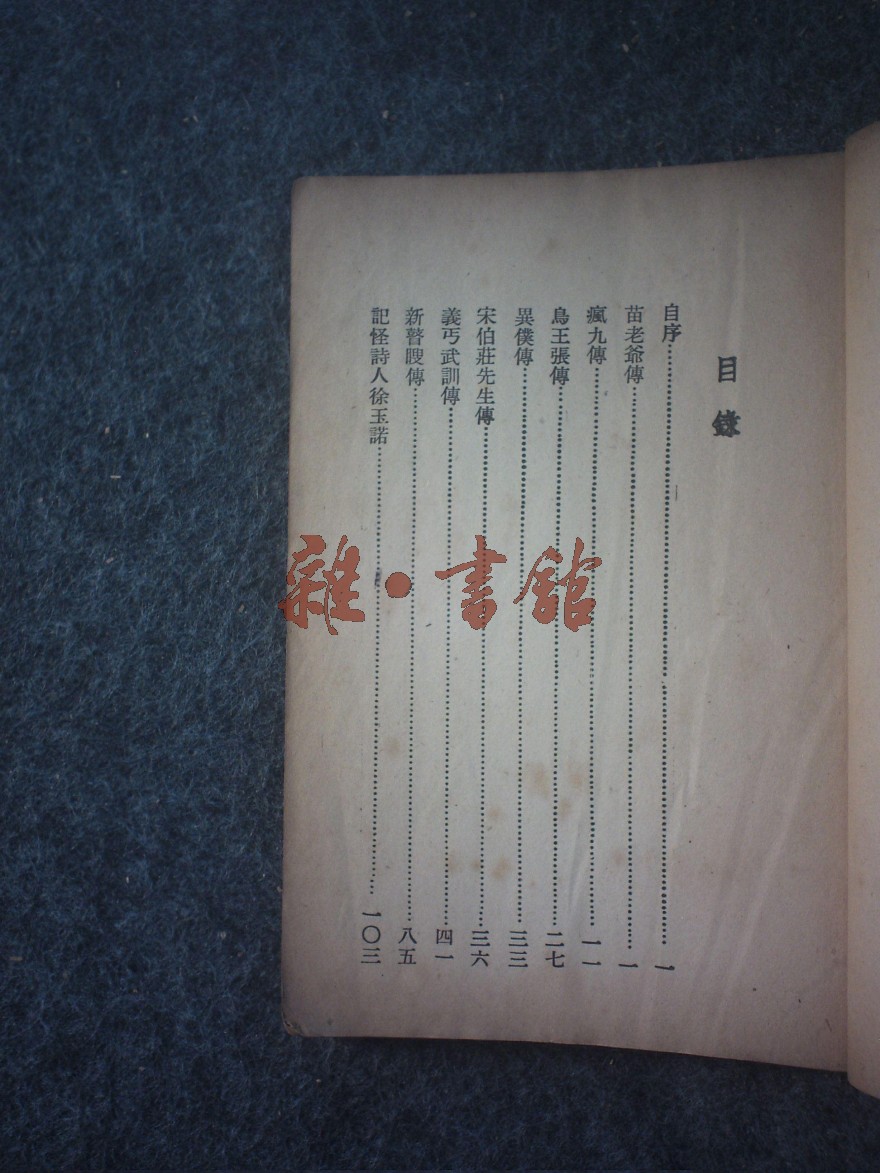 目錄
自序⋯⋯一
苗老爺傳⋯⋯一
瘋九傳⋯⋯一一
鳥王張傳⋯⋯二七
異僕傳⋯⋯三三
宋伯莊先生傳⋯⋯三六
義丐武訓傳⋯⋯四一
新瞽瞍傳⋯⋯八五
記怪詩人徐玉諾⋯⋯一〇三
雜·書館